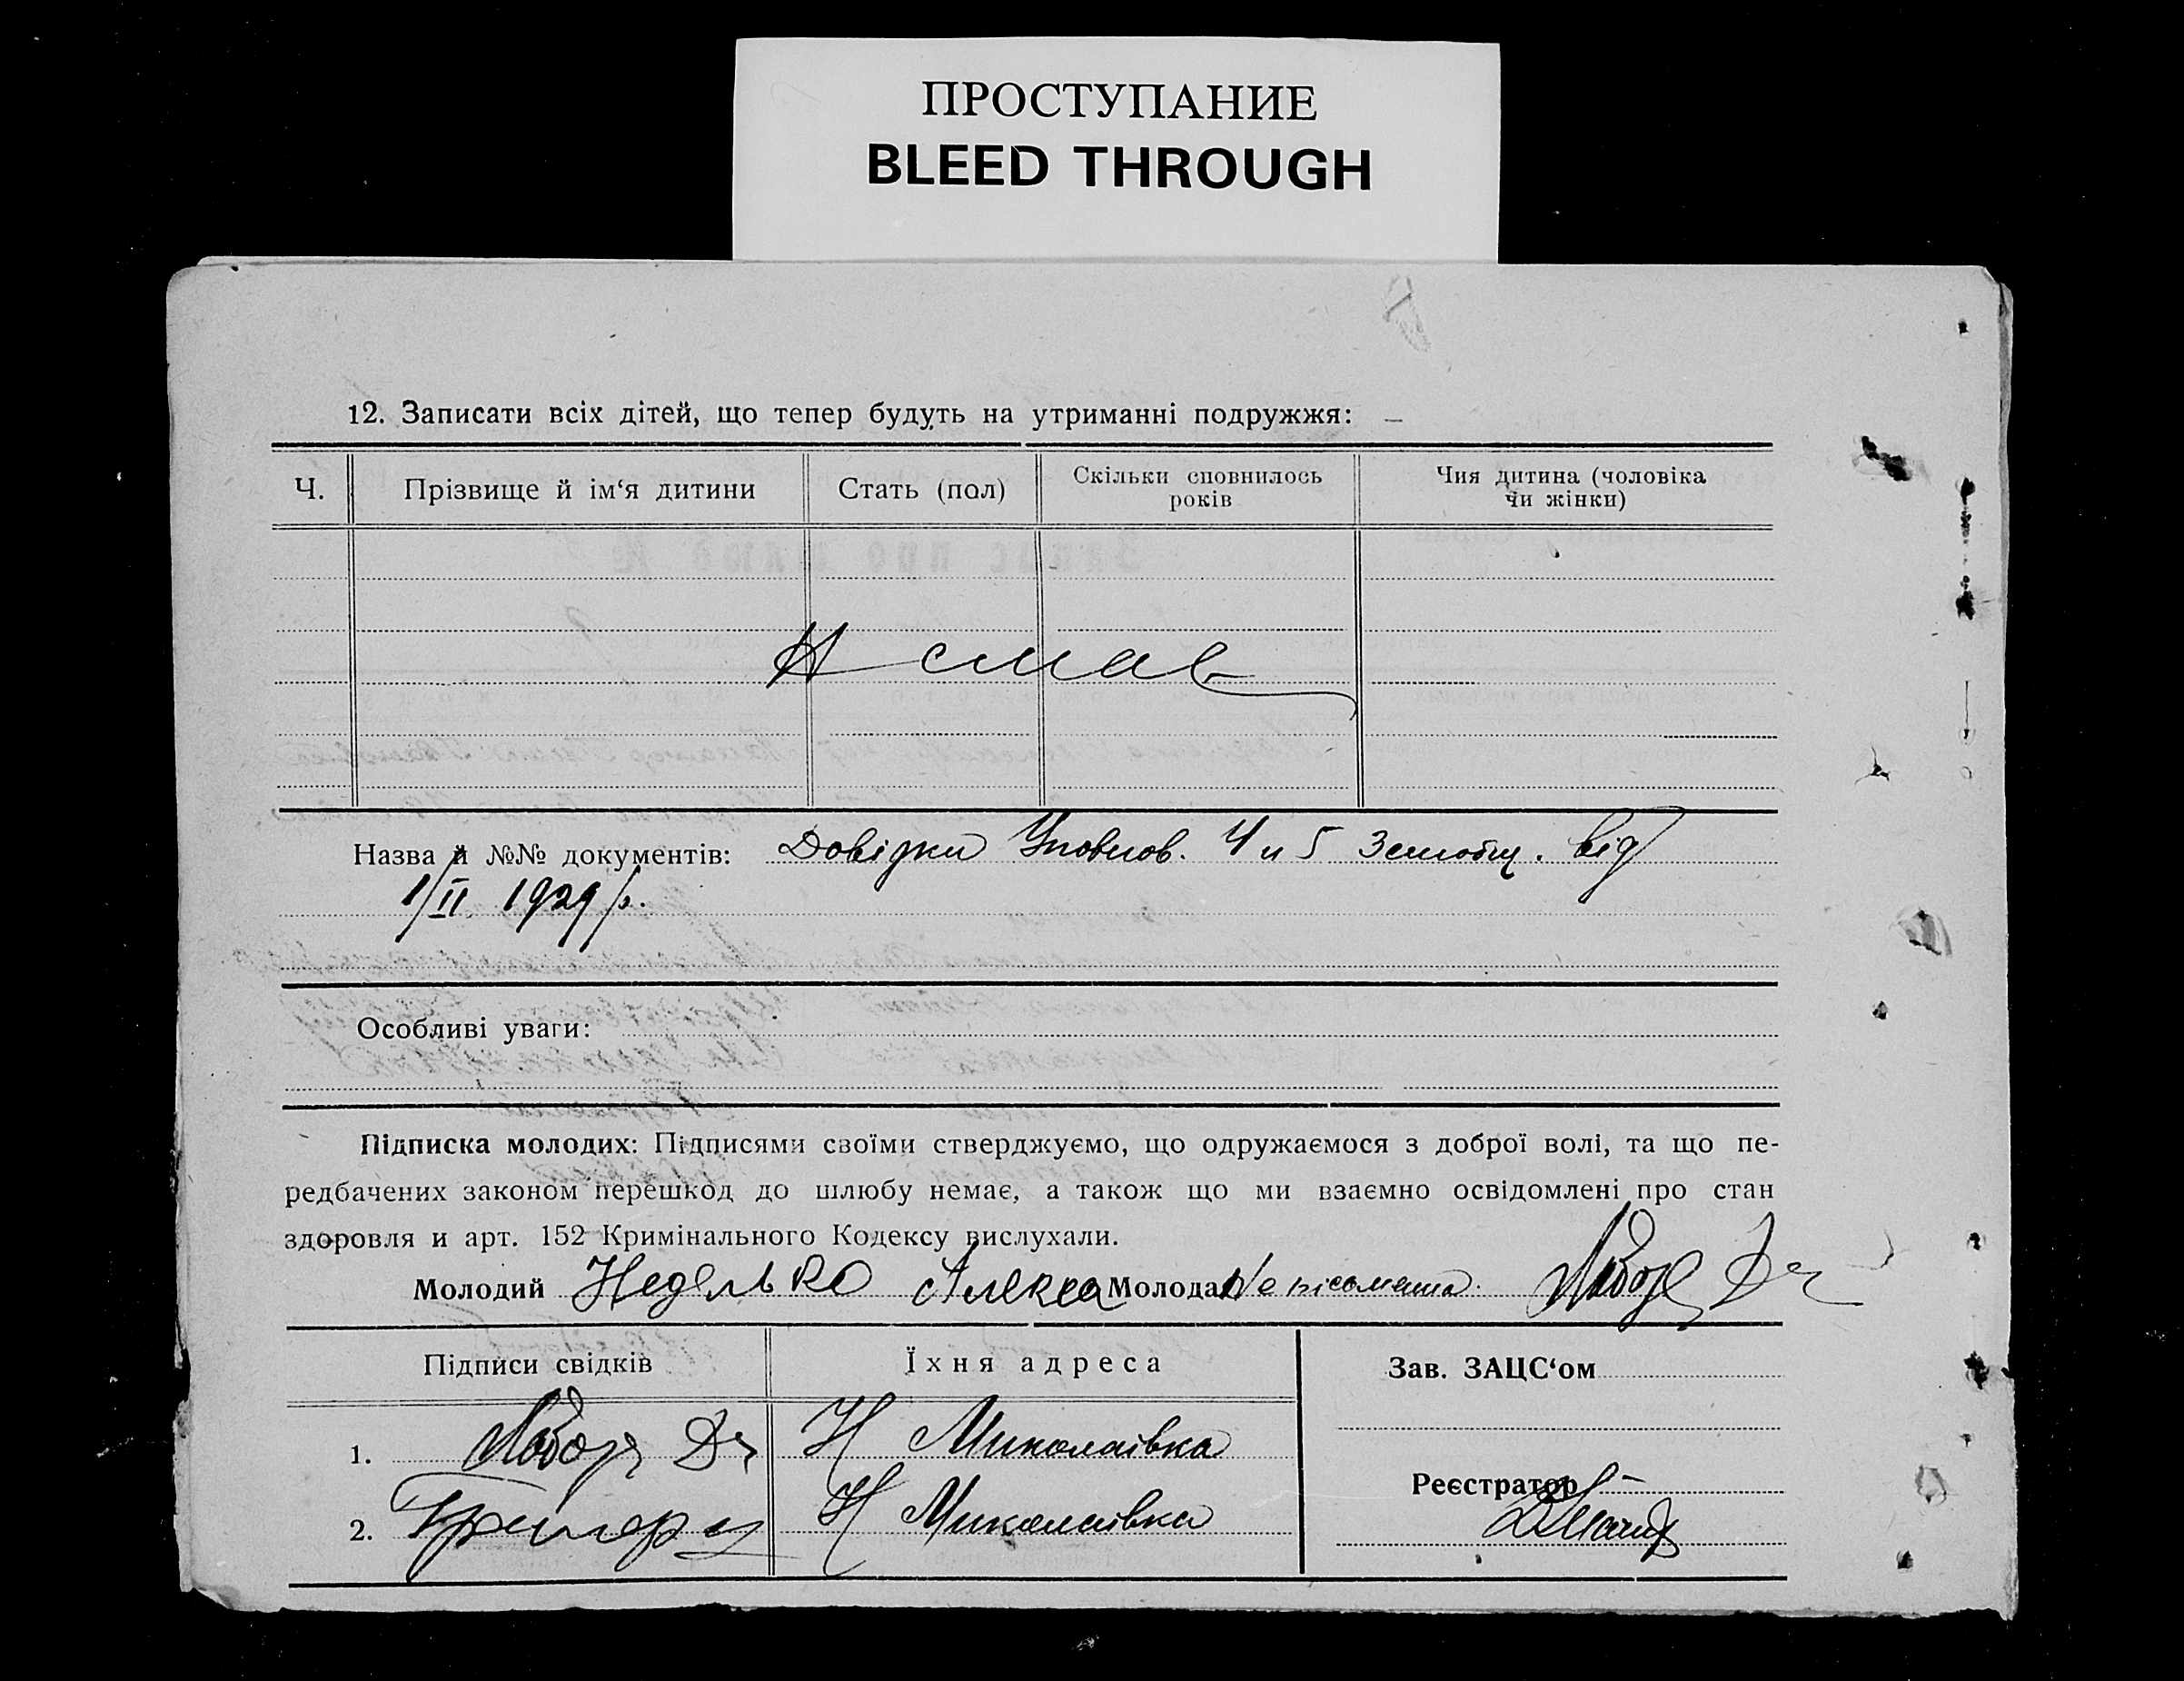 ПРОСТУПАНИЕ
BLEED THROUGH
12. Записати всіх дітей, що тепер будуть на утриманні подружжя: –
Ч. Прізвище й ім‘я дитини Стать (пол) Скільки сповнилось років Чия дитина (чоловіка чи жінки)
Назва й №№ документів: Довідки Уповнов. 4 и 5 Земгром. від
1/II 1929 р.
Особливі уваги:
Підписка молодих: Підписями своїми стверджуємо, що одружаємося з доброї волі, та що пе-
редбачених законом перешкод до шлюбу немає, а також що ми взаємно освідомлені про стан
здоровля и арт. 152 Кримінального Кодексу вислухали.
Молодий Неделько Алекса Молода Неписьменна
Підписи свідків Їхня адреса Зав. ЗАЦС‘ом
1. Н Миколаівка
Реєстратор
2. Н Миколаівка